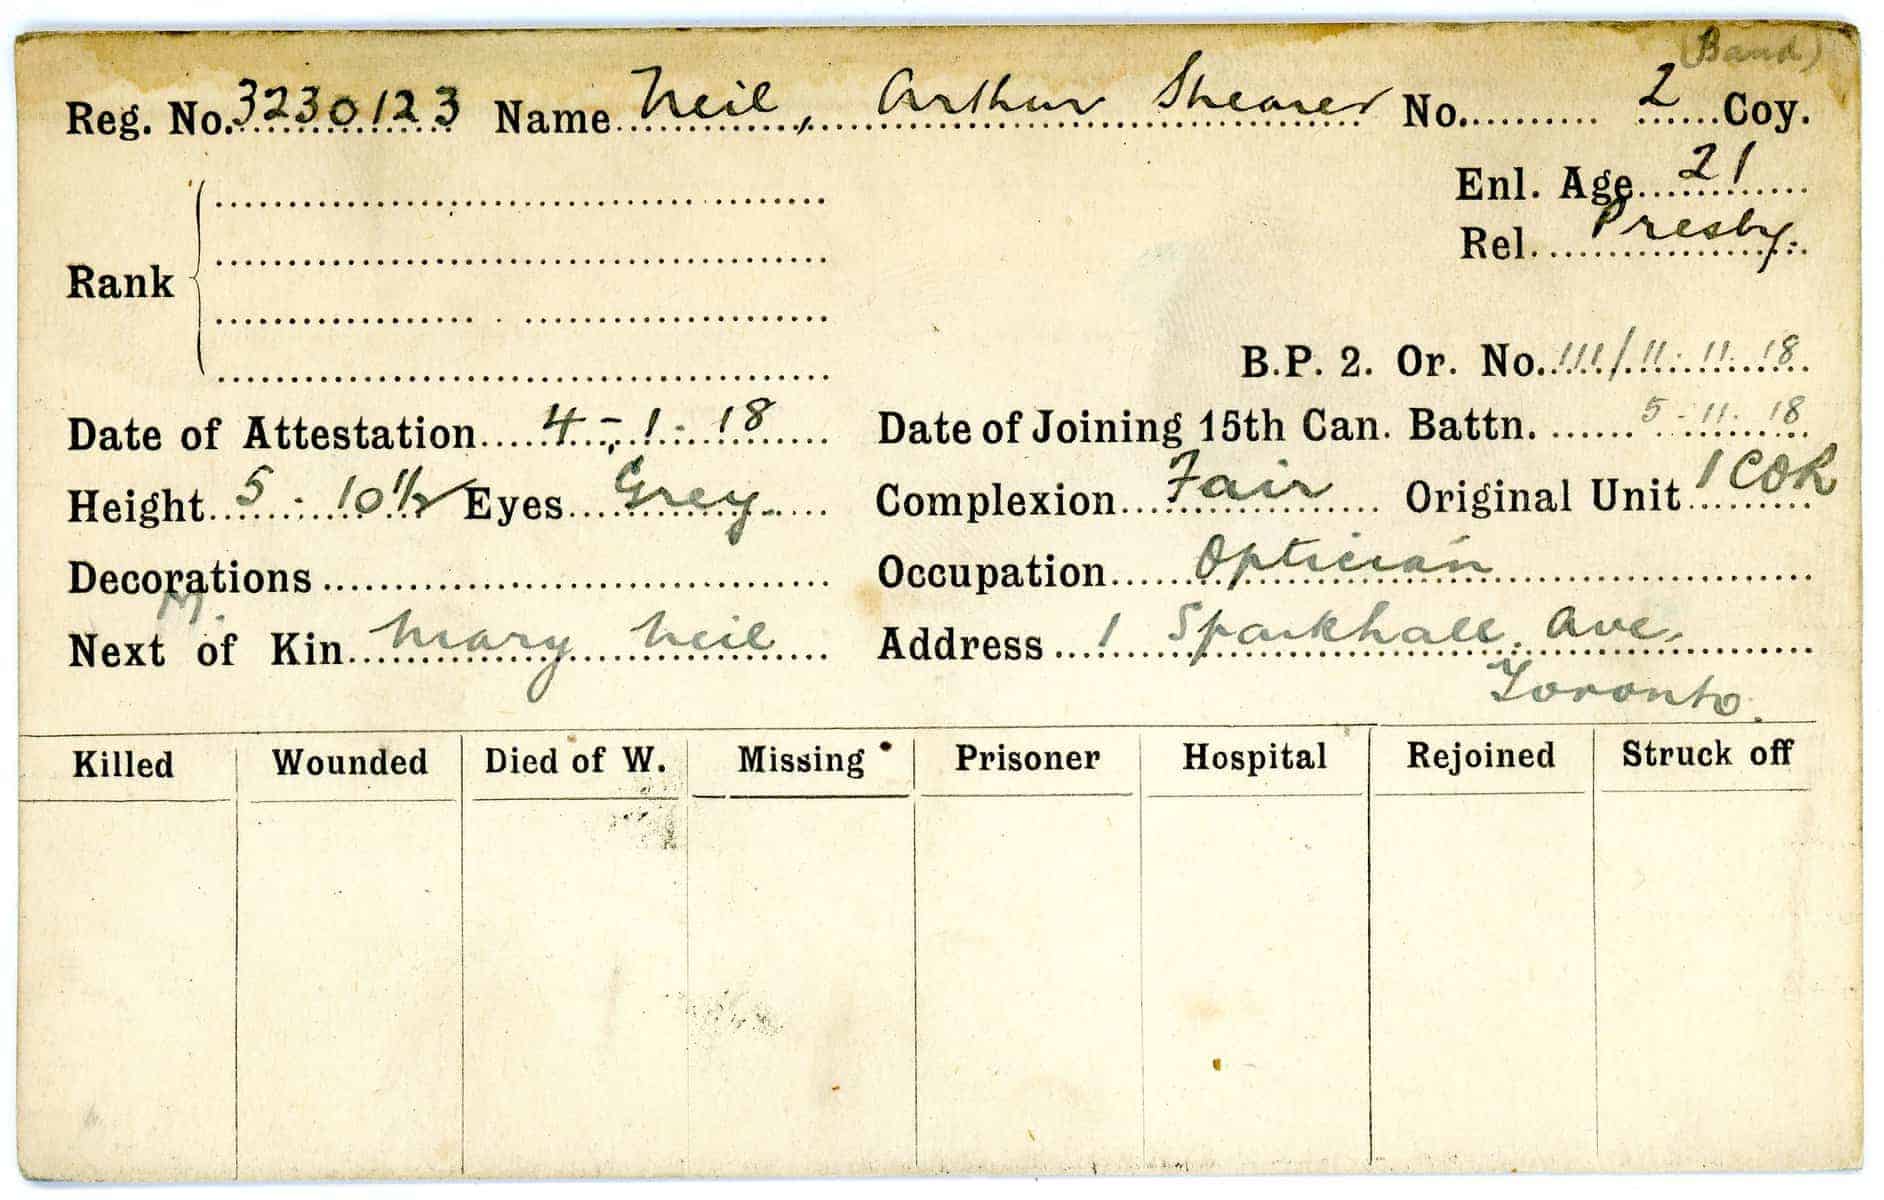 (Band)
Reg. No. 3230123 Name Neil, Arthur Shearer No. 2 Coy.
Enl. Age 21
Rel. Presby.
Rank
B.P. 2. Or. No. 111/11.11.18
Date of Attestation 4-1-18 Date of Joining 15th Can. Battn. 5-11-18
Height 5-10 1/2 Eyes Grey Complexion Fair Original Unit 1 COR
Decorations Occupation Optician
M.
Next of Kin Mary Neil Address 1 Sparkhall Ave.
Toronto.
Killed Wounded Died of W. Missing Prisoner Hospital Rejoined Struck off